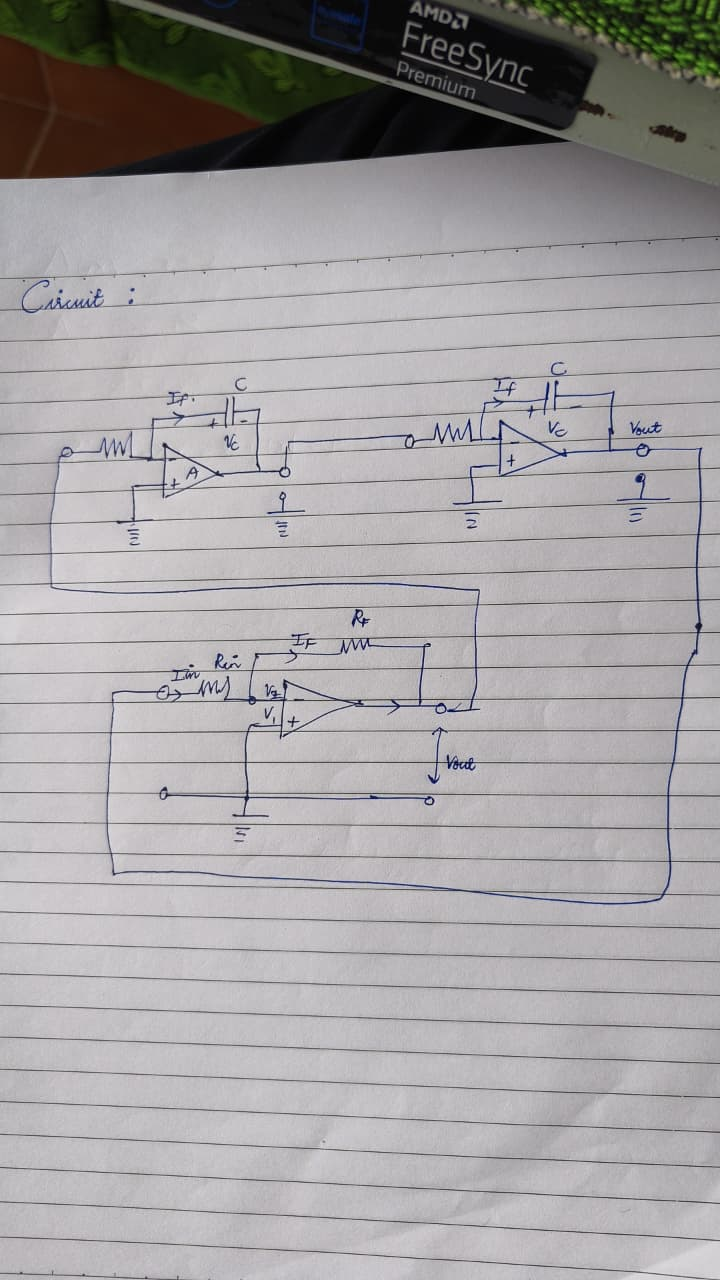 AMD
FreeSync
Premium
Circuit :
If. C
+ - Vc
- A
+
If C
+ - Vc Vout
-
+
Rf
IF
Iin Rin
V2 -
V1 +
Vout